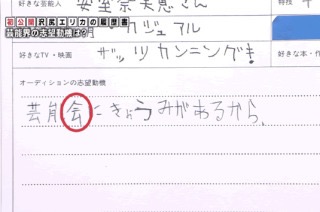 好きな芸能人
安室奈美恵さん
特技
初公開 沢尻エリカの履歴書
芸能界の志望動機は?
カジュアル
好きなTV・映画
ザッツカンニング!
好きな本・作
オーディションの志望動機
芸能会にきょうみがあるから。